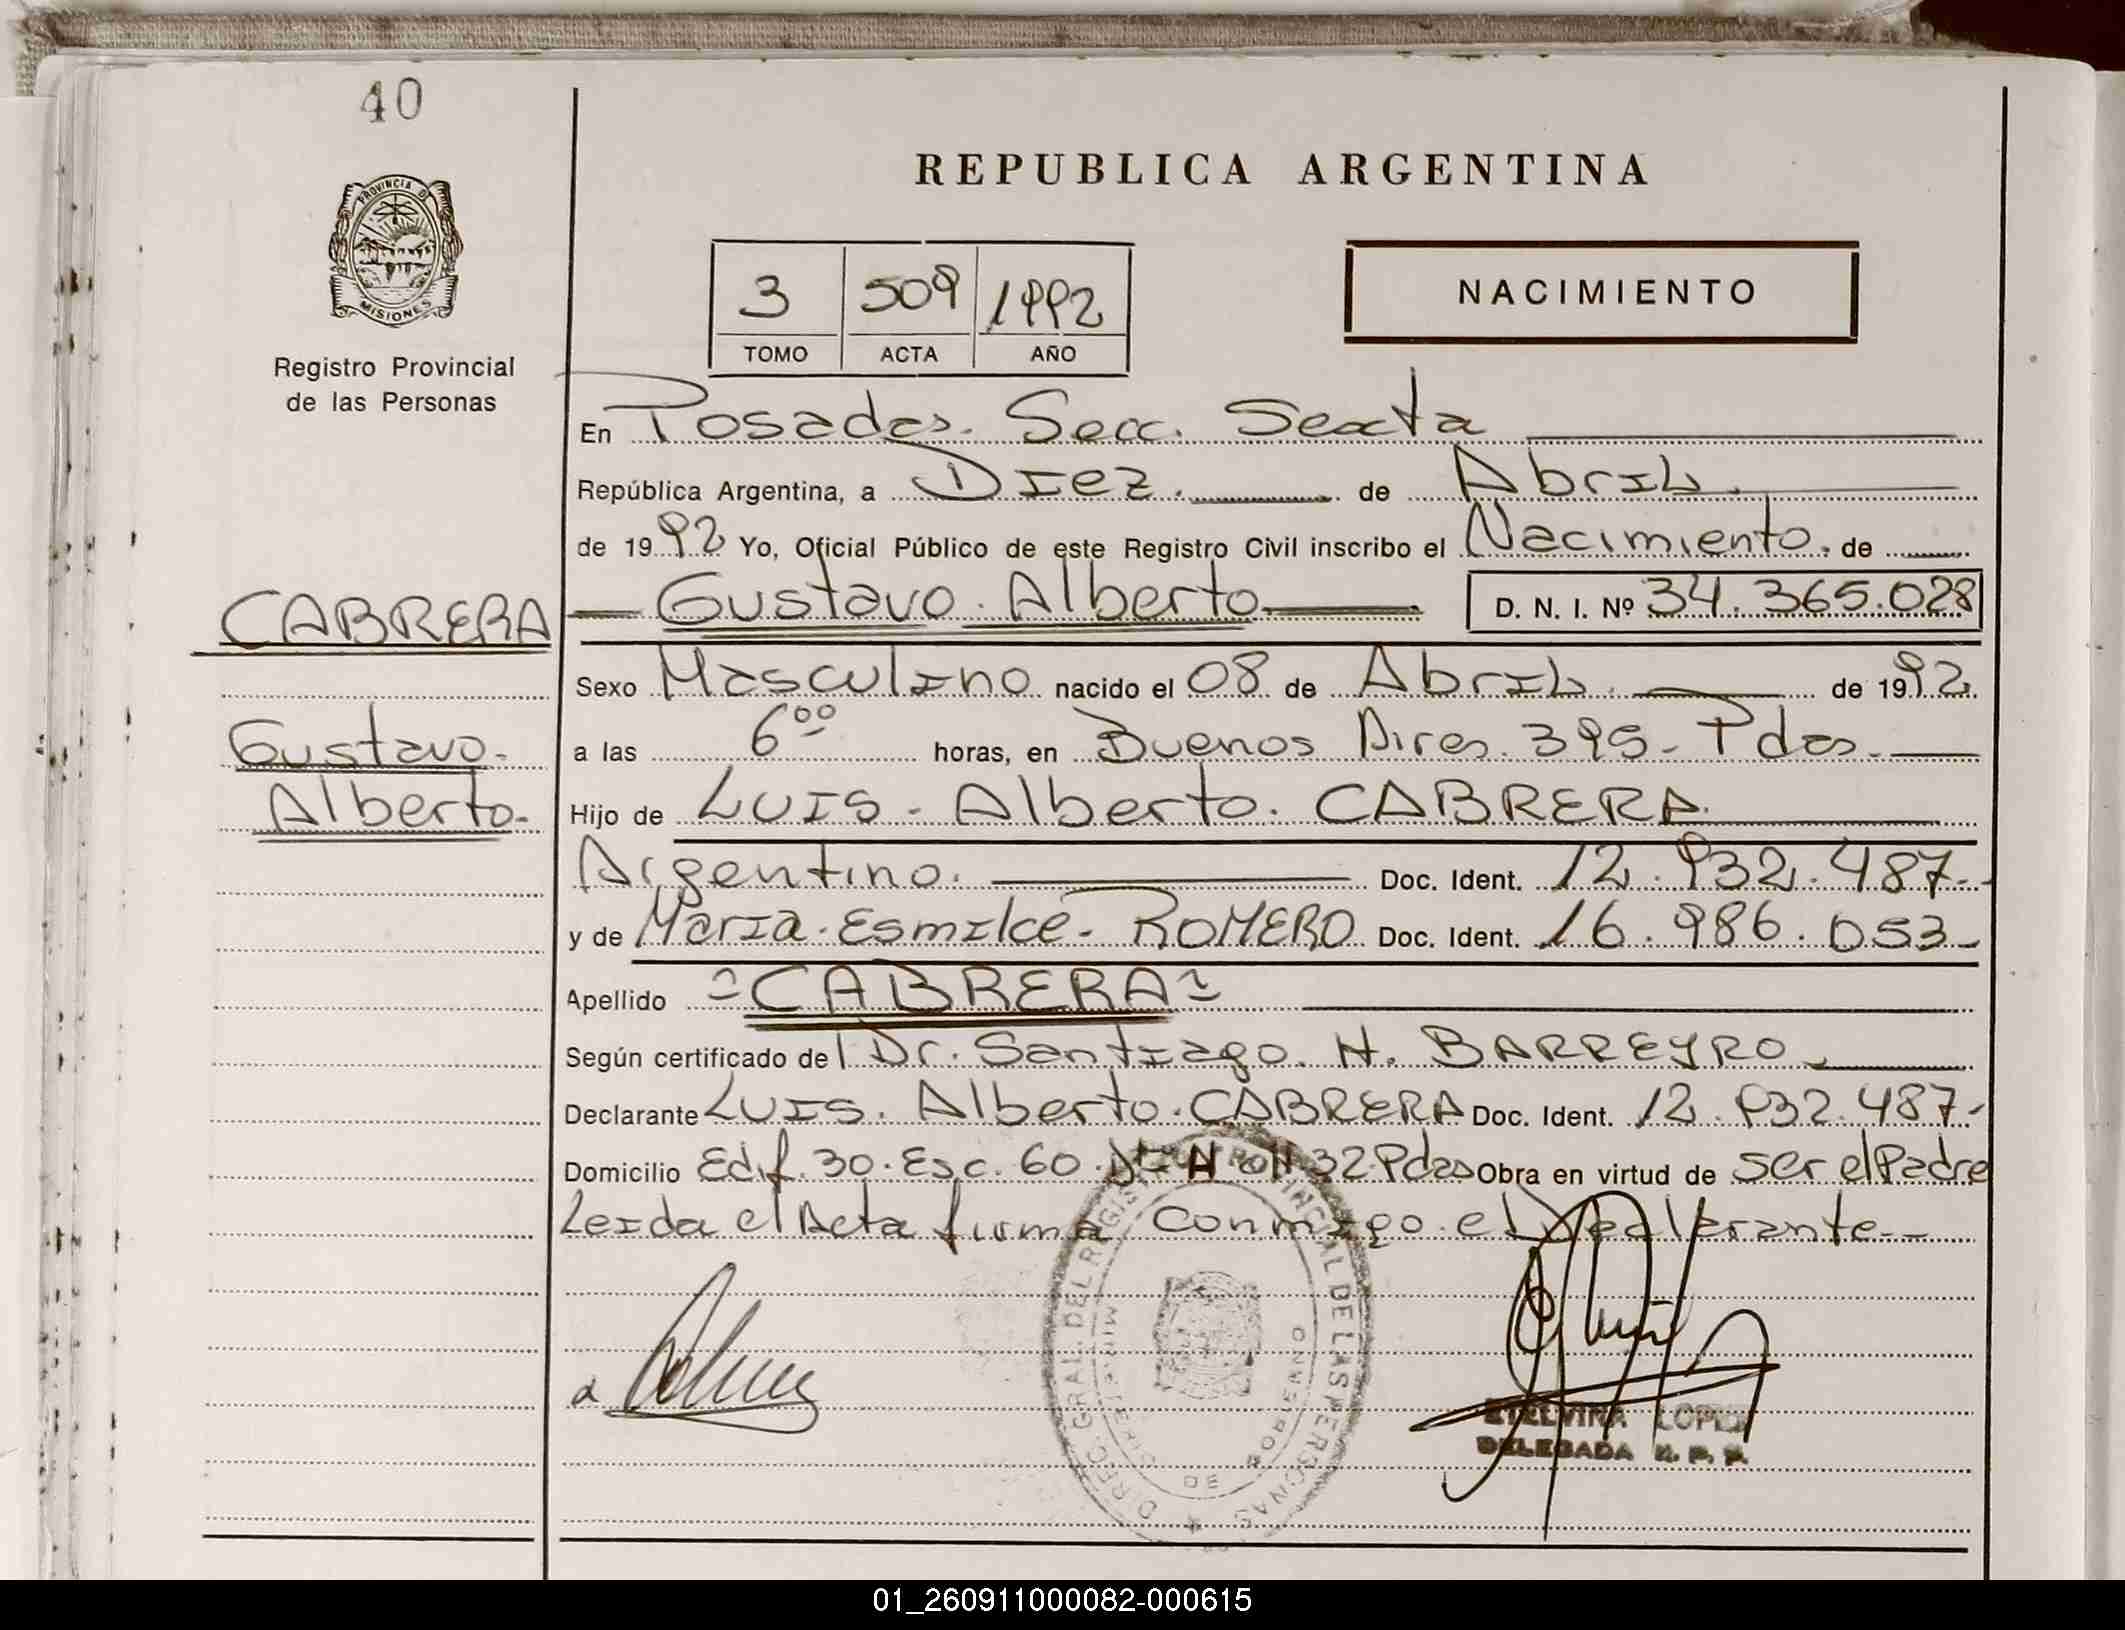 40
REPUBLICA ARGENTINA
PROVINCIA DE
MISIONES
Registro Provincial
de las Personas
3 509 1992
TOMO ACTA AÑO
NACIMIENTO
En Posadas. Secc. Sexta
República Argentina, a Diez. de Abril.
de 1992 Yo, Oficial Público de este Registro Civil inscribo el Nacimiento. de
CABRERA Gustavo. Alberto D. N. I. Nº 34.365.028
Sexo Masculino nacido el 08 de Abril. de 1992.
Gustavo. a las 6⁰⁰ horas, en Buenos Aires. 395- Pdas.
Alberto- Hijo de Luis. Alberto. CABRERA.
Argentino. Doc. Ident. 12.932.487-
y de Maria. Esmilce- ROMERO Doc. Ident. 16.986.053-
Apellido CABRERA
Según certificado del Dr. Santiago. H. BARREYRO
Declarante Luis. Alberto. CABRERA Doc. Ident. 12.932.487-
Domicilio Edif. 30. Esc. 60. 32. Pdas Obra en virtud de ser el Padre
Leida el Acta firma conmigo el Declarante--
DIREC. GRAL. DEL REGISTRO PROVINCIAL DE LAS PERSONAS
MINISTERIO DE GOBIERNO
ETELVINA LOPEZ
DELEGADA R. P. P.
01_260911000082-000615